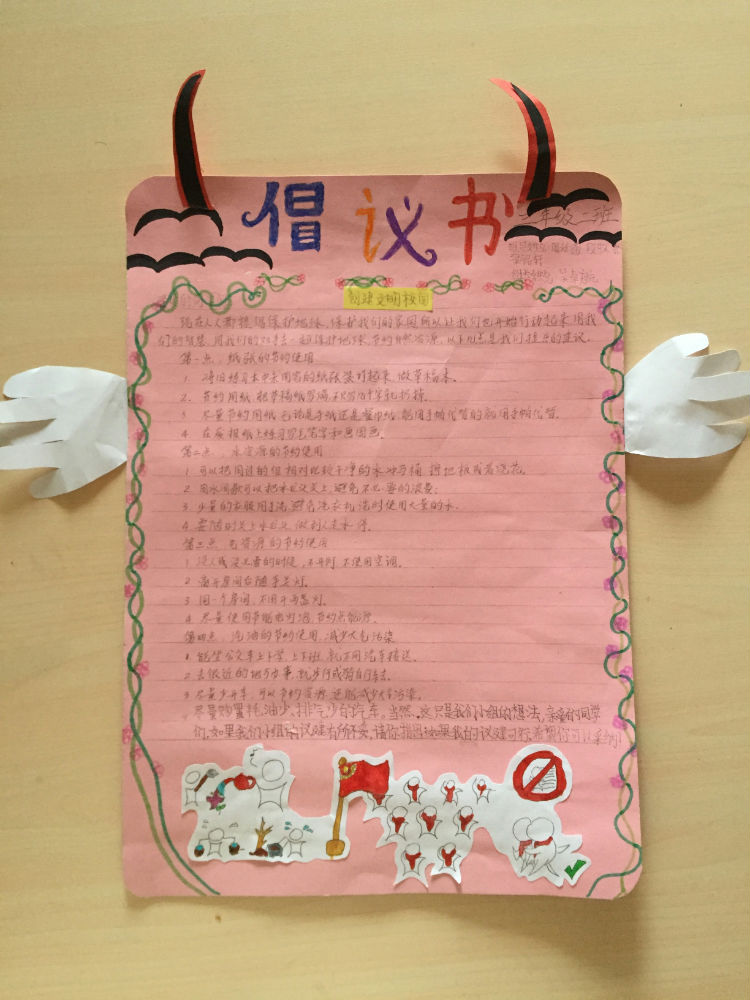 倡议书
三年级二班
创建文明校园
现在人人都提倡保护地球,保护我们的家园所以让我们也开始行动起来,用我
们的智慧,用我们的双手去一起保护地球,节约自然资源,以下四点是我们提出的建议。
第一点、纸张的节约使用
1. 将旧练习本中未用完的纸张装订起来,做草稿本。
2. 节约用纸,把草稿纸写满,不写几个字就扔掉。
3. 尽量节约用纸,无论是手纸还是餐巾纸,能用手帕代替的就用手帕代替。
4. 在废报纸上练习写毛笔字和画国画。
第二点、水资源的节约使用
1. 可以把用过的但相对比较干净的水冲马桶,擦地板或者浇花。
2. 用水间歇可以把水龙头关上,避免不必要的浪费;
3. 少量的衣服用手洗,避免洗衣机洗时使用大量的水。
4. 要随时关上水龙头,做到人走水停。
第三点、电资源的节约使用
1. 没人或没必要的时候,不开灯,不使用空调。
2. 离开房间后随手关灯。
3. 同一个房间,不用开两盏灯。
4. 尽量使用节能电灯泡,节约点能源。
第四点、汽油的节约使用,减少大气污染
1. 能坐公交车上下学,上下班,就不用汽车接送。
2. 去很近的地方办事,就步行或骑自行车去。
3. 尽量少开车,可以节约资源,还能减少大气污染。
4. 尽量购置耗油少,排气少的汽车,当然,这只是我们小组的想法,亲爱的同学
们,如果我们小组的议建有所不妥,请你指出如果我的议建可行,希望你可以采纳!